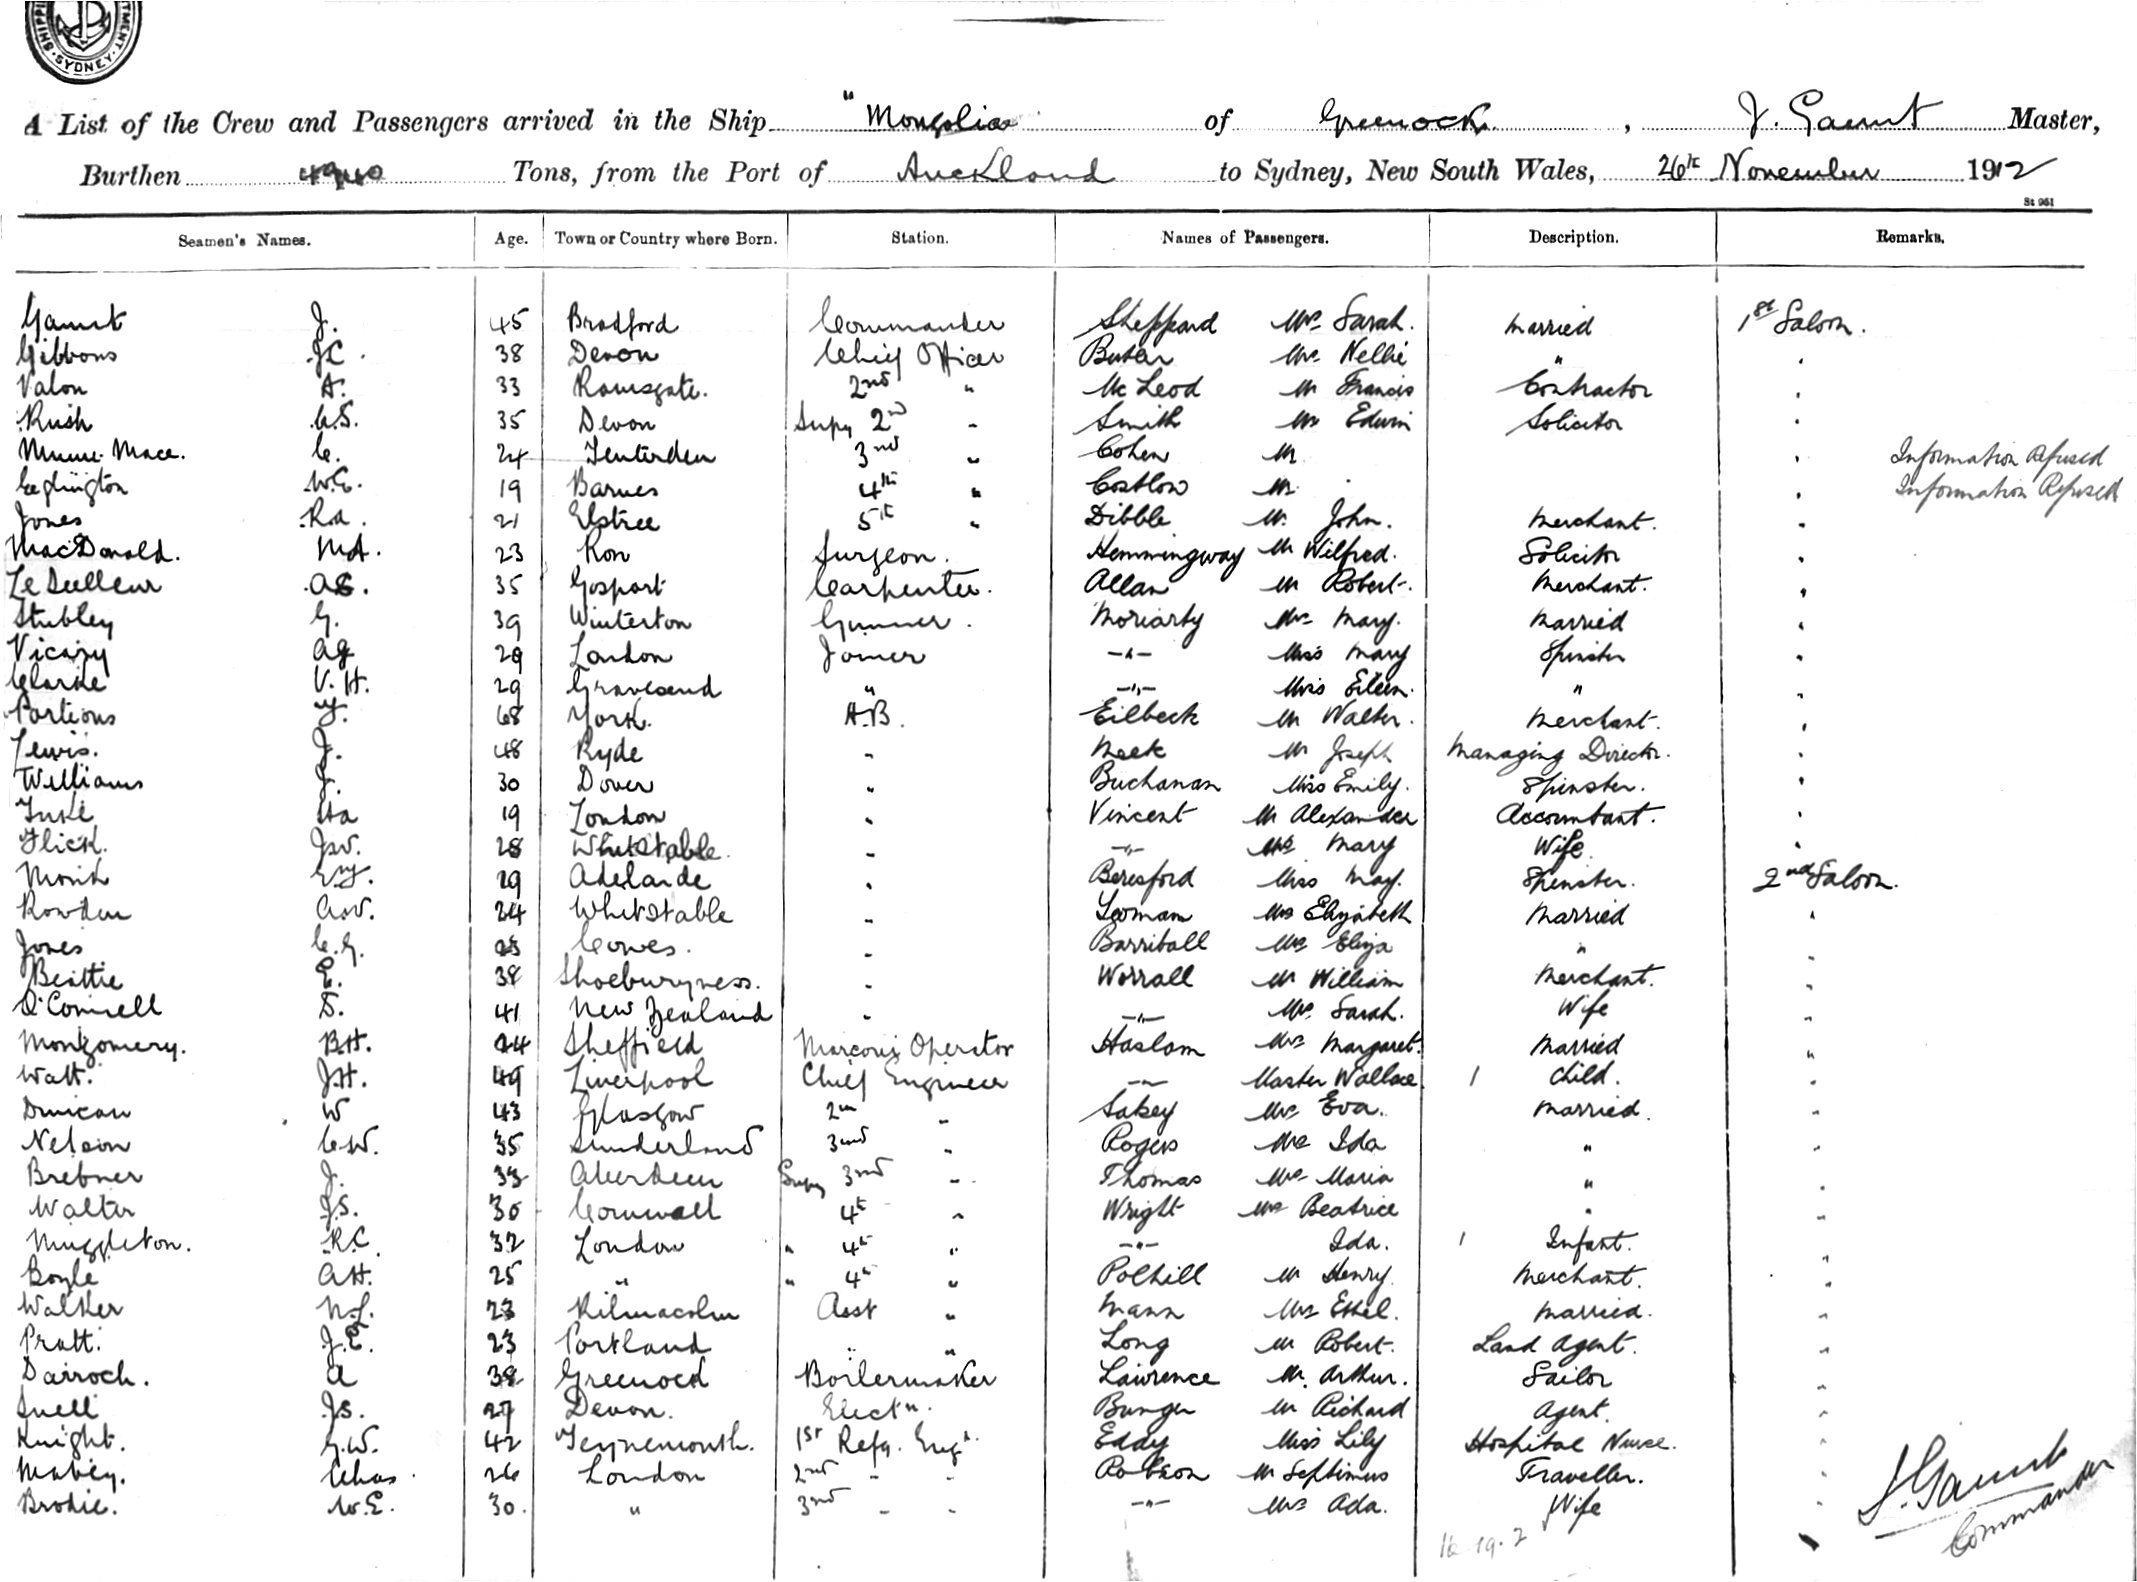 SHIPPI TMENT. SYDNEY.
A List of the Crew and Passengers arrived in the Ship "Mongolia of Greenock, J. Gaunt Master,
Burthen 4940 Tons, from the Port of Auckland to Sydney, New South Wales, 26th November 1912
St 961
Seamen's Names. Age. Town or Country where Born. Station. Names of Passengers. Description. Remarks.
Gaunt J. 45 Bradford Commander Sheppard Mrs Sarah. Married 1st Saloon.
Gibbons J.C. 38 Devon Chief Officer Butler Mrs Nellie "
Valon A. 33 Ramsgate. 2nd " McLeod Mr Francis Contractor
Rush C.S. 35 Devon Supy 2nd " Smith Mr Edwin Solicitor
Mace. C. 24 Tenterden 3rd " Cohen Mr Information Refused
Eglington W.E. 19 Barnes 4th " Costlow Mr. Information Refused
Jones R.A. 21 Elstree 5th " Dibble Mr. John. Merchant.
MacDonald. M.A. 23 Surgeon. Hemmingway Mr Wilfred. Solicitor
Le Sueur 35 Gosport Carpenter. Allan Mr Robert. Merchant.
Stubley G. 39 Winterton Gunner. Moriarty Mrs Mary. Married
Vicary 29 London Joiner -"- Miss Mary Spinster
Clarke V.H. 29 Gravesend " -"- Miss Eileen. "
Porteous 68 York. A.B. Eilbeck Mr Walter. Merchant.
Lewis. J. 48 Ryde " Meek Mr Joseph Managing Director.
Williams J. 30 Dover " Buchanan Miss Emily. Spinster.
Tuke 19 London " Vincent Mr Alexander Accountant.
Flick. J.W. 28 Whitstable. " -"- Mrs Mary Wife
Monk 29 Adelaide " Beresford Miss May. Spinster. 2nd Saloon.
Rowden A.W. 24 Whitstable " Yeoman Mrs Elizabeth Married "
Jones C.G. Cowes. " Barriball Mrs Eliza " "
Beattie E. 38 Shoeburyness. " Worrall Mr William Merchant. "
O'Connell D. 41 New Zealand " -"- Mrs Sarah. Wife "
Montgomery. B.H. 24 Sheffield Marconi Operator Haslam Mrs Margaret. Married "
Watt. J.H. 49 Liverpool Chief Engineer -"- Master Wallace 1 Child. "
Duncan W 43 Glasgow 2nd " Sakey Mrs Eva. Married. "
Nelson C.W. 35 Sunderland 3rd " Rogers Mrs Ida " "
Brebner J. 33 Aberdeen Supy 3rd " Thomas Mrs Maria " "
Walter J.S. 30 Cornwall 4th " Wright Mrs Beatrice " "
Muggleton. R.C. 32 London " 4th " -"- Ida. 1 Infant. "
Boyle A.H. 25 " " 4th " Polhill Mr Henry. Merchant. "
Walker N.L. 23 Kilmacolm Asst " Mann Mrs Ethel. Married. "
Pratt. J.E. 23 Portland " " Long Mr Robert. Land Agent. "
Darroch. A 38 Greenock Boilermaker Lawrence Mr. Arthur. Sailor "
Snell J.S. 27 Devon. Electn. Bunger Mr Richard Agent. "
Knight. G.W. 42 Teynemouth. 1st Refg. Engr. Eddy Miss Lily Hospital Nurse. "
Mabey. Chas. 26 London 2nd " " Robson Mr Septimus Traveller. "
Brodie. W.E. 30. " 3rd " " -"- Mrs Ada. Wife "
16 19. 2
J. Gaunt
Commander